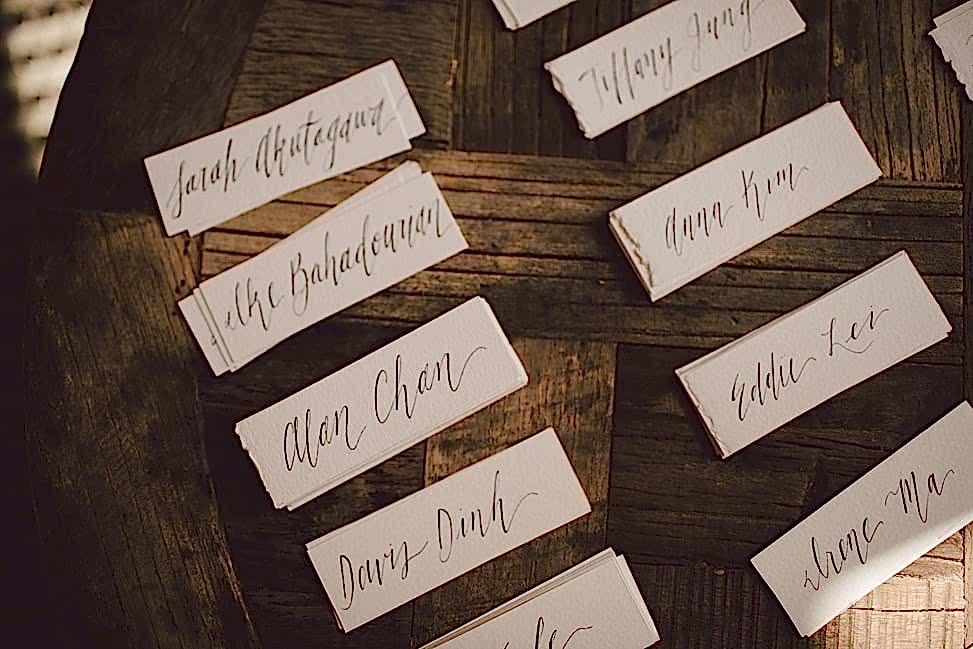 Sarah Akutagawa
Elke Bahadourian
Alan Chan
Davis Dinh
Tiffany Jung
Anna Kim
Eddie Lei
Irene Ma